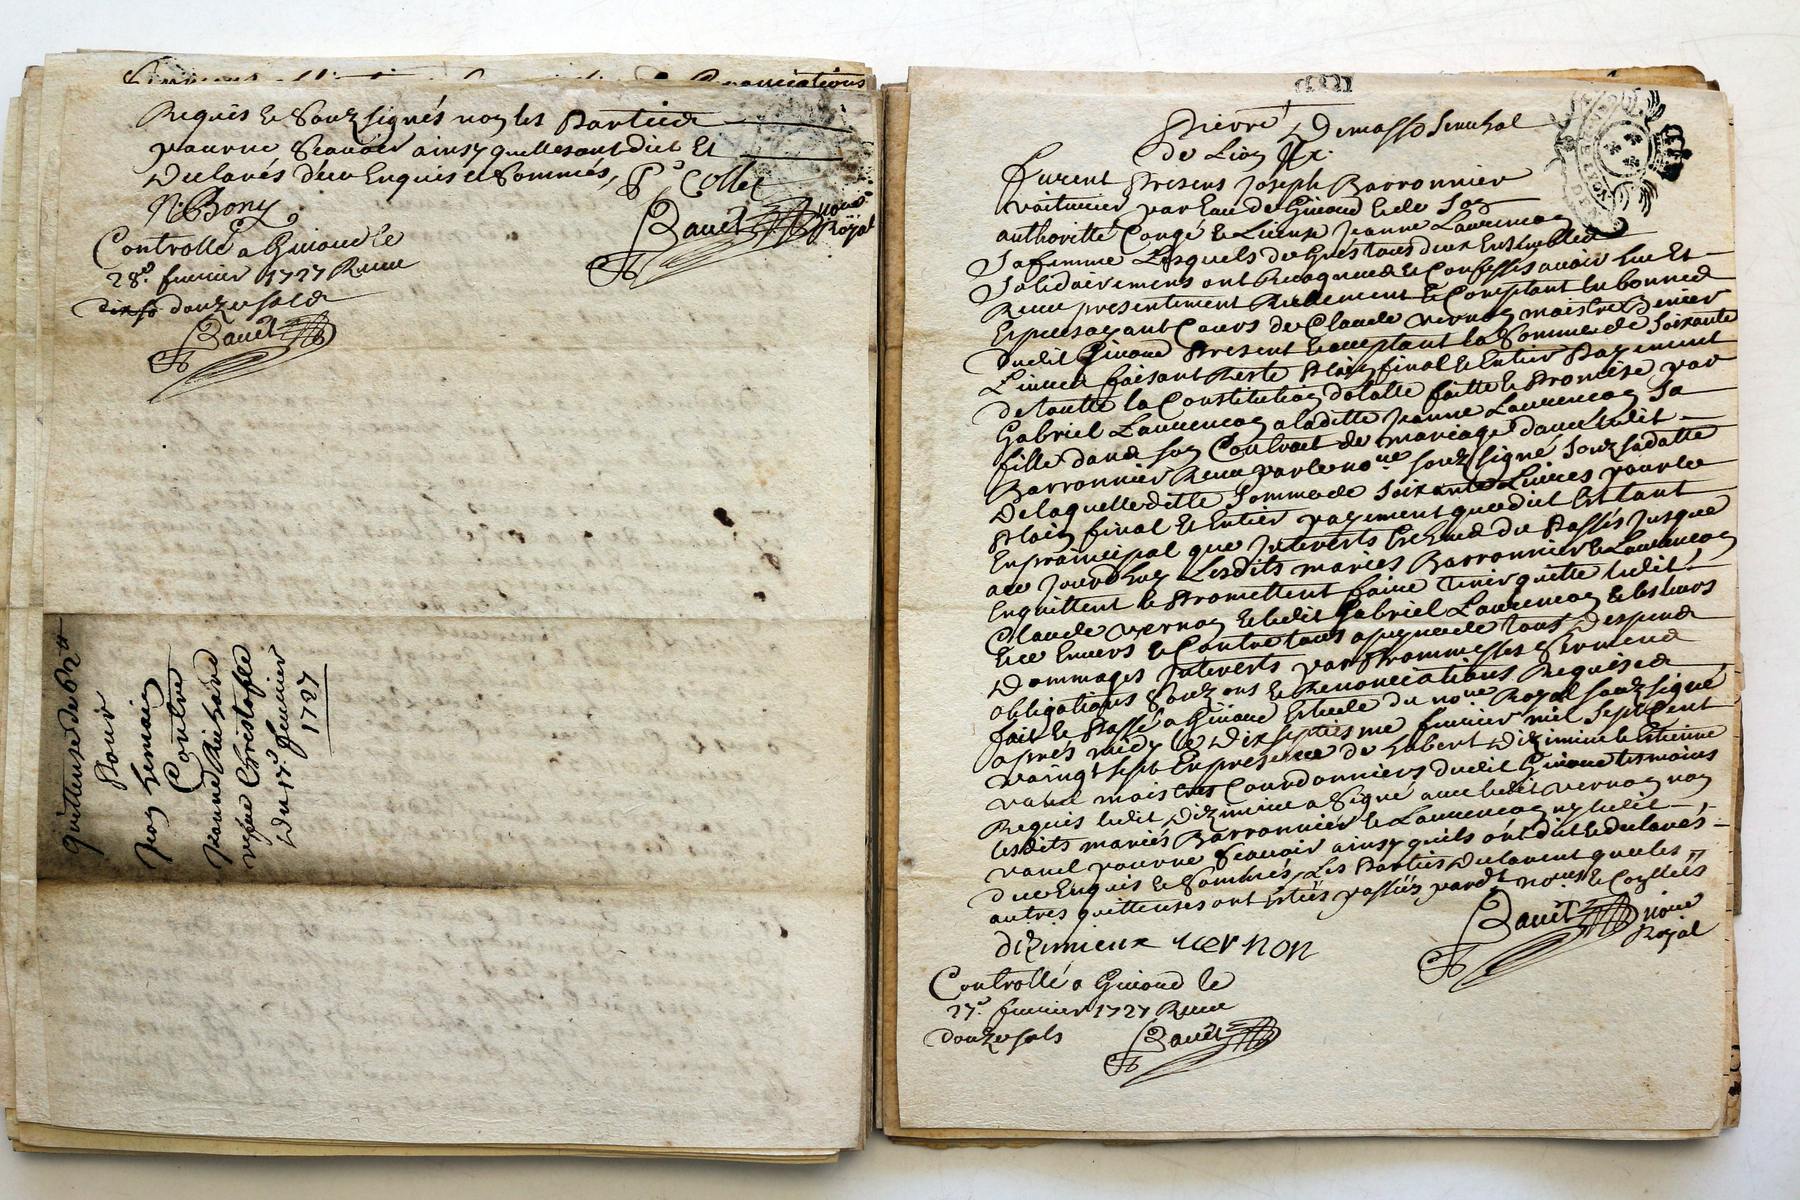 Requis et Souzsignés non les Parties
pour ne Scavoir ainsy quelles ont dict Et
Declarés deüe Enquis et Sommés, P. Collet
N. Bony
Bauêt noue
Royal
Controllé a Giuord le
28e feurier 1727 Receu
douze sols
Bauêt
quittense de
Pour
Contre
Jeanne Richard
vefue Christofle
Du 17e feurier
1727
Pierre Demasso Senechal
de Lion &c.
furent Presens Joseph Barronnier
voiturier par Eau de Giuord et de Son
authoritté Congé et License Jeanne Laurencon
Sa femme Lesquels de Gréstous deux Ensembles
Solidairemens ont Recogneu et Confessés auoir heu Et
Receu presentement Reelement et Comptant En bonnes
Especes ayant Cours de Claude vernon maistre
dudit Giuord Present acceptant la Somme de Soixante
Liures faisant Reste Plain final et Entier Payement
de toutte la Constitution dotalle faitte et Promise par
Gabriel Laurencon a laditte Jeanne Laurencon Sa
fille dans son Contrat de mariage d'auec ledit
Barronnier Receu par le noue souzsigné Souz sa datte
De laquelleditte Somme de Soixante Liures pour le
Plain final et Entier payement que dict Est tant
En principal que Interests Escheus du Passés Jusque
ace Jourdhuy Lesdits mariés Barronnier et Laurencon
Enquittent et Promettent faire tenir quitte ledit
Claude vernon et ledit Gabriel Laurencon et les leurs
Et ce Enuers et Contre tous apeyne de tous Despens
Dommages Interests par Prommesses Sermens
obligations Souzons et Renonciations Requises
fait et Passé a Giuord Estude du noue Royal souzsigné
apres midy le Dixseptiesme feurier mil Sept Cent
vaingt sept En presence de hubert Dizimieu et Estienne
maistres Courdonniers dudit Giuord tesmoins
Requis ledit Dizimieu a Signé auec ledit vernon non
lesdits mariés Barronnier et Laurencon ny ledit
pour ne Scauoir ainsy quils ont dit et declarés
deüe Enquis et Sommés, Les Parties Declarent que les
autres quittenses ont Estes passées pardt noues et Conseils
dizimieux vernon
Bauêt noue
Royal
Controllé a Giuord le
27e feurier 1727 Receu
douze sols
Bauêt